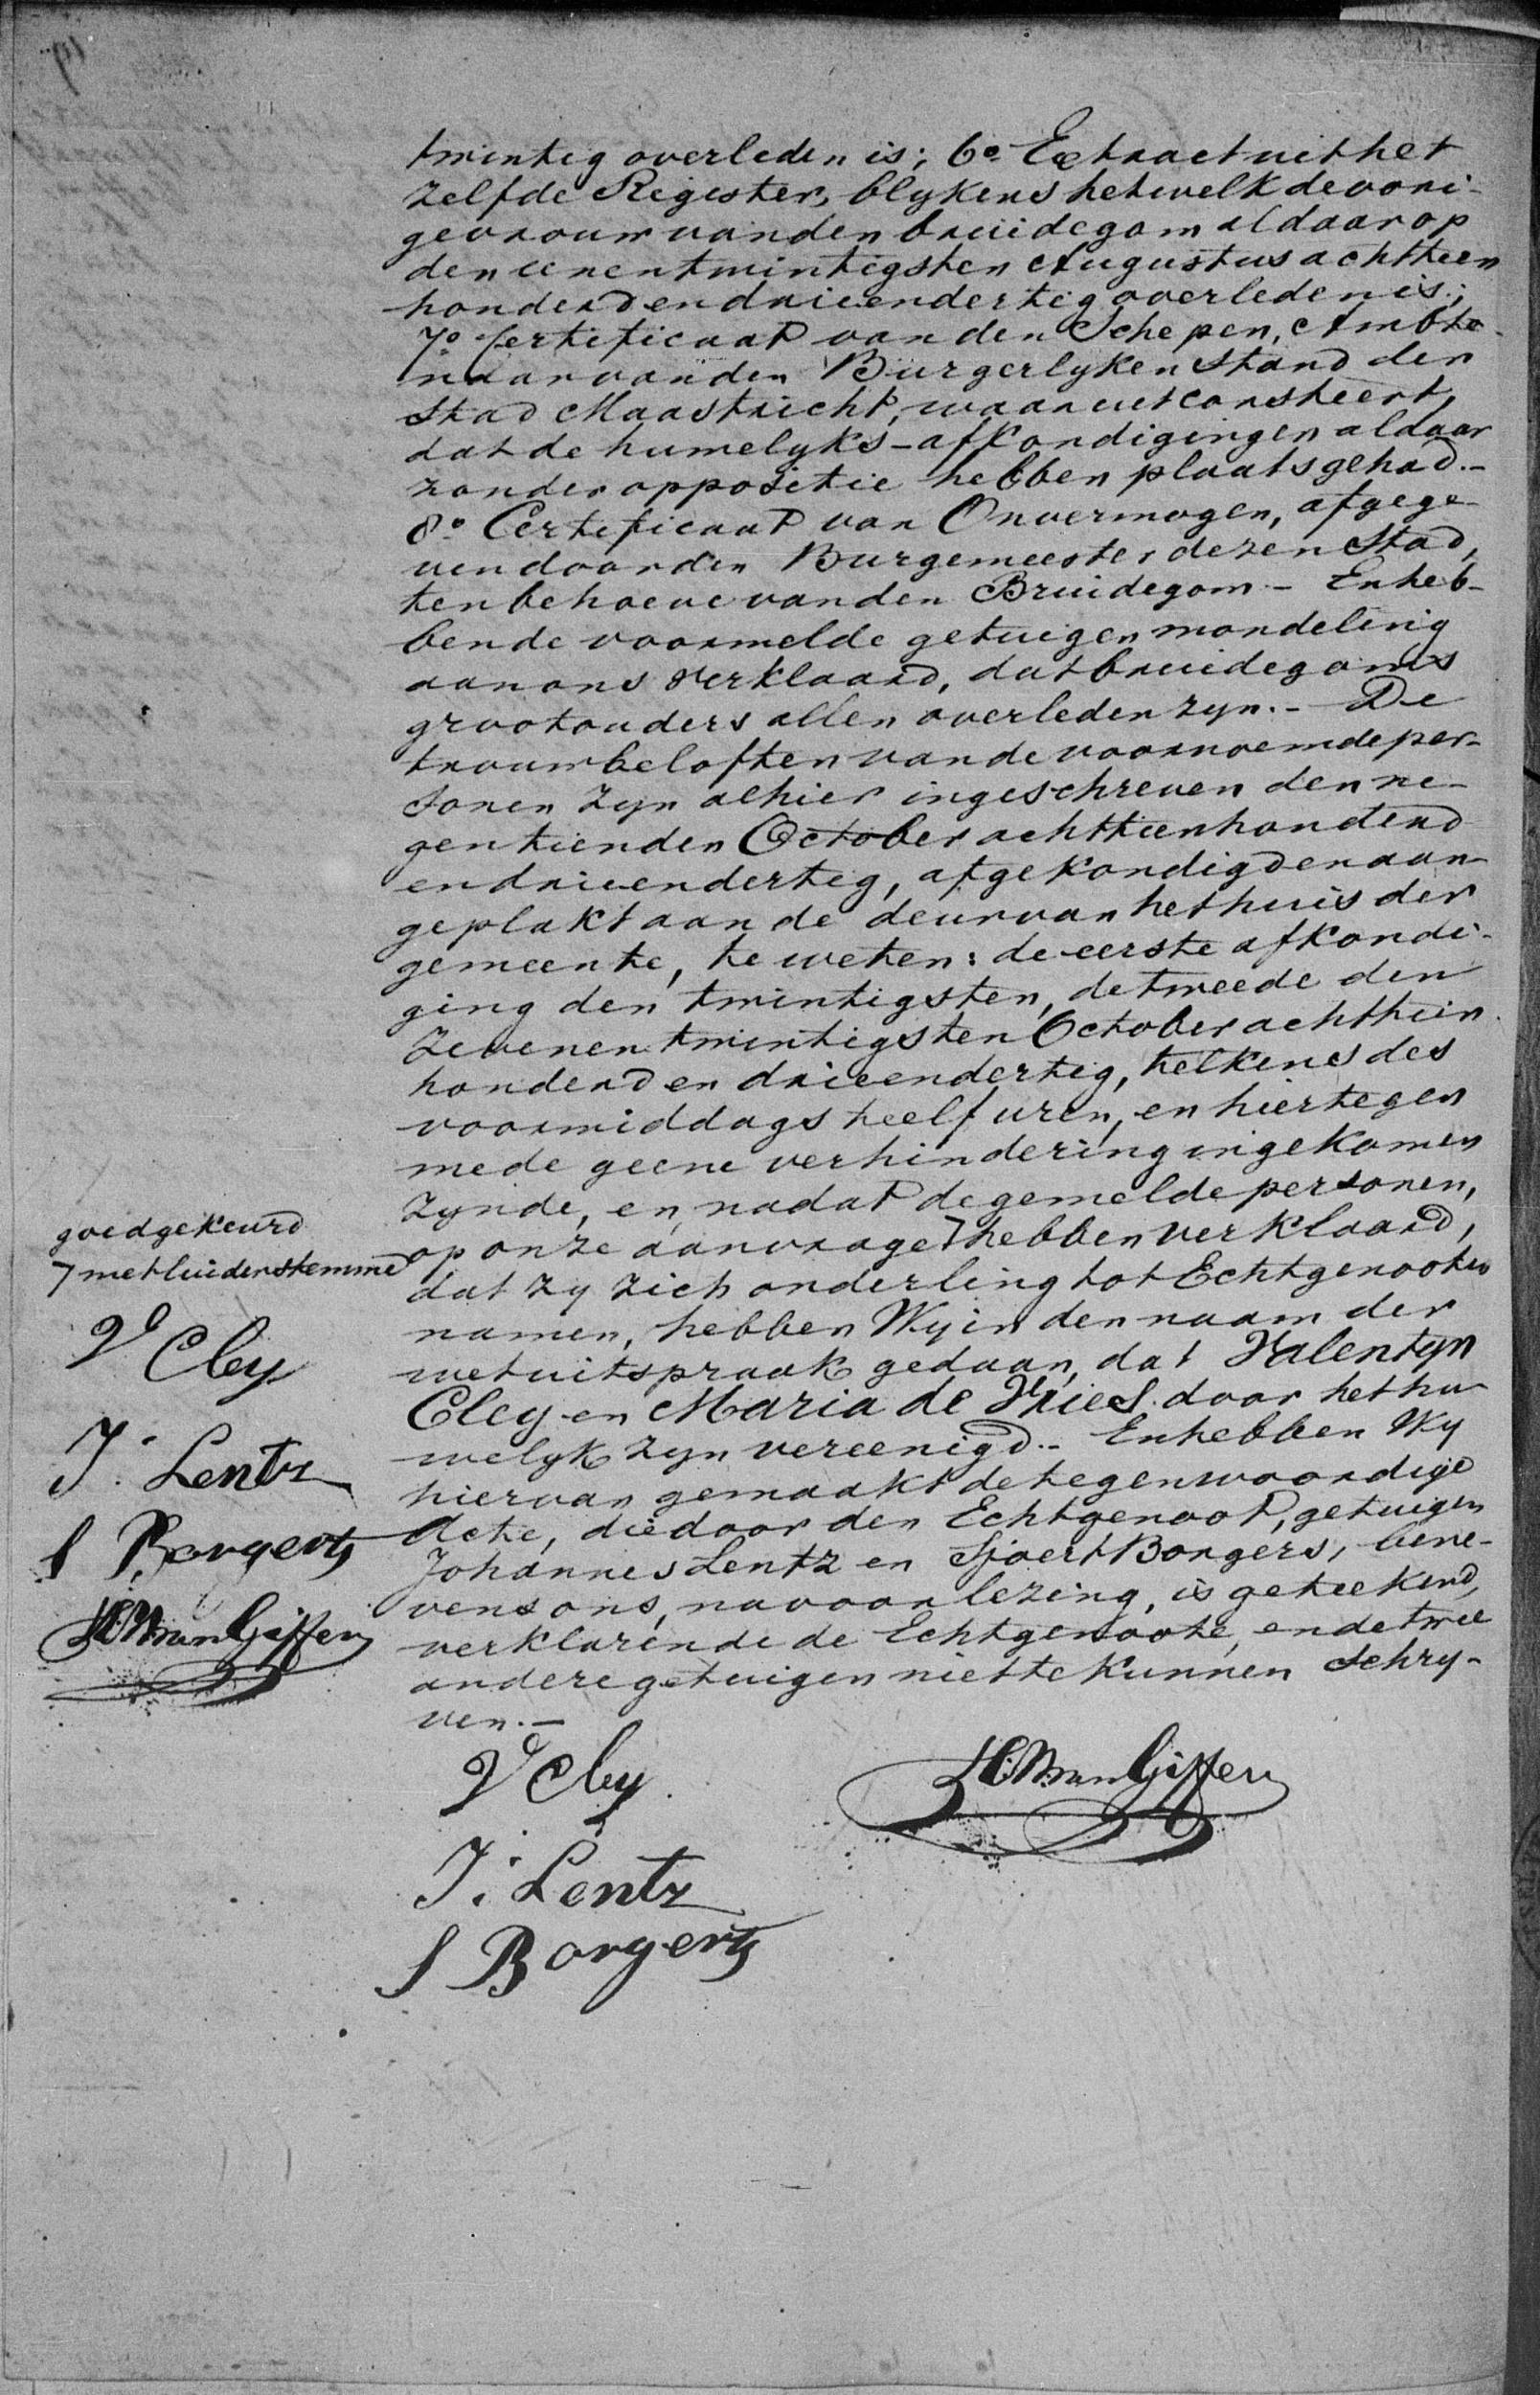 twintig overleden is; 6o Extract uit het
zelfde Register, blykens hetwelk de vori-
ge vrouw van den bruidegom aldaar op
den eenentwintigsten Augustus achttien
honderd en drieendertig overleden is;
7o Certificaat van den Schepen, Ambte-
naar van den Burgerlyken Stand der
Stad Maastricht, waaruit consteert,
dat de huwelyks-afkondigingen aldaar
zonder oppositie hebben plaats gehad.-
8o Certificaat van Onvermogen, afgege-
ven door den Burgemeester dezer Stad,
ten behoeve van den Bruidegom - En heb-
bende voormelde getuigen mondeling
aan ons verklaard, dat bruidegoms
grootouders allen overleden zyn.- De
trouwbeloften van de voornoemde per-
sonen zyn alhier ingeschreven den ne-
gentienden October achttienhonderd
en drieendertig, afgekondigd en aan-
geplakt aan de deur van het huis der
gemeente, te weten: de eerste afkondi-
ging den twintigsten, de tweede den
zevenentwintigsten October achttien
honderd en drieendertig, telkens des
voormiddags te elf uren, en hiertegen
mede geene verhindering ingekomen
zynde, en nadat de gemelde personen,
op onze aanvrage 7 hebben verklaard,
dat zy zich onderling tot Echtgenooten
namen, hebben Wy in den naam der
wet uitspraak gedaan, dat Valentyn
Cley en Maria de Vries door het hu-
welyk zyn vereenigd.- En hebben Wy
hiervan gemaakt de tegenwoordige
Acte, die door den Echtgenoot, getuigen
Johannes Lentz en Sjoert Borgers, bene-
vens ons, na voorlezing, is geteekend,
verklarende de Echtgenoote, en de twee
andere getuigen niet te kunnen Schry-
ven.-
V Cley
J. Lentz
S Borgerts
goedgekeurd
7 met luider stemme
V Cley
J. Lentz
S Borgerts